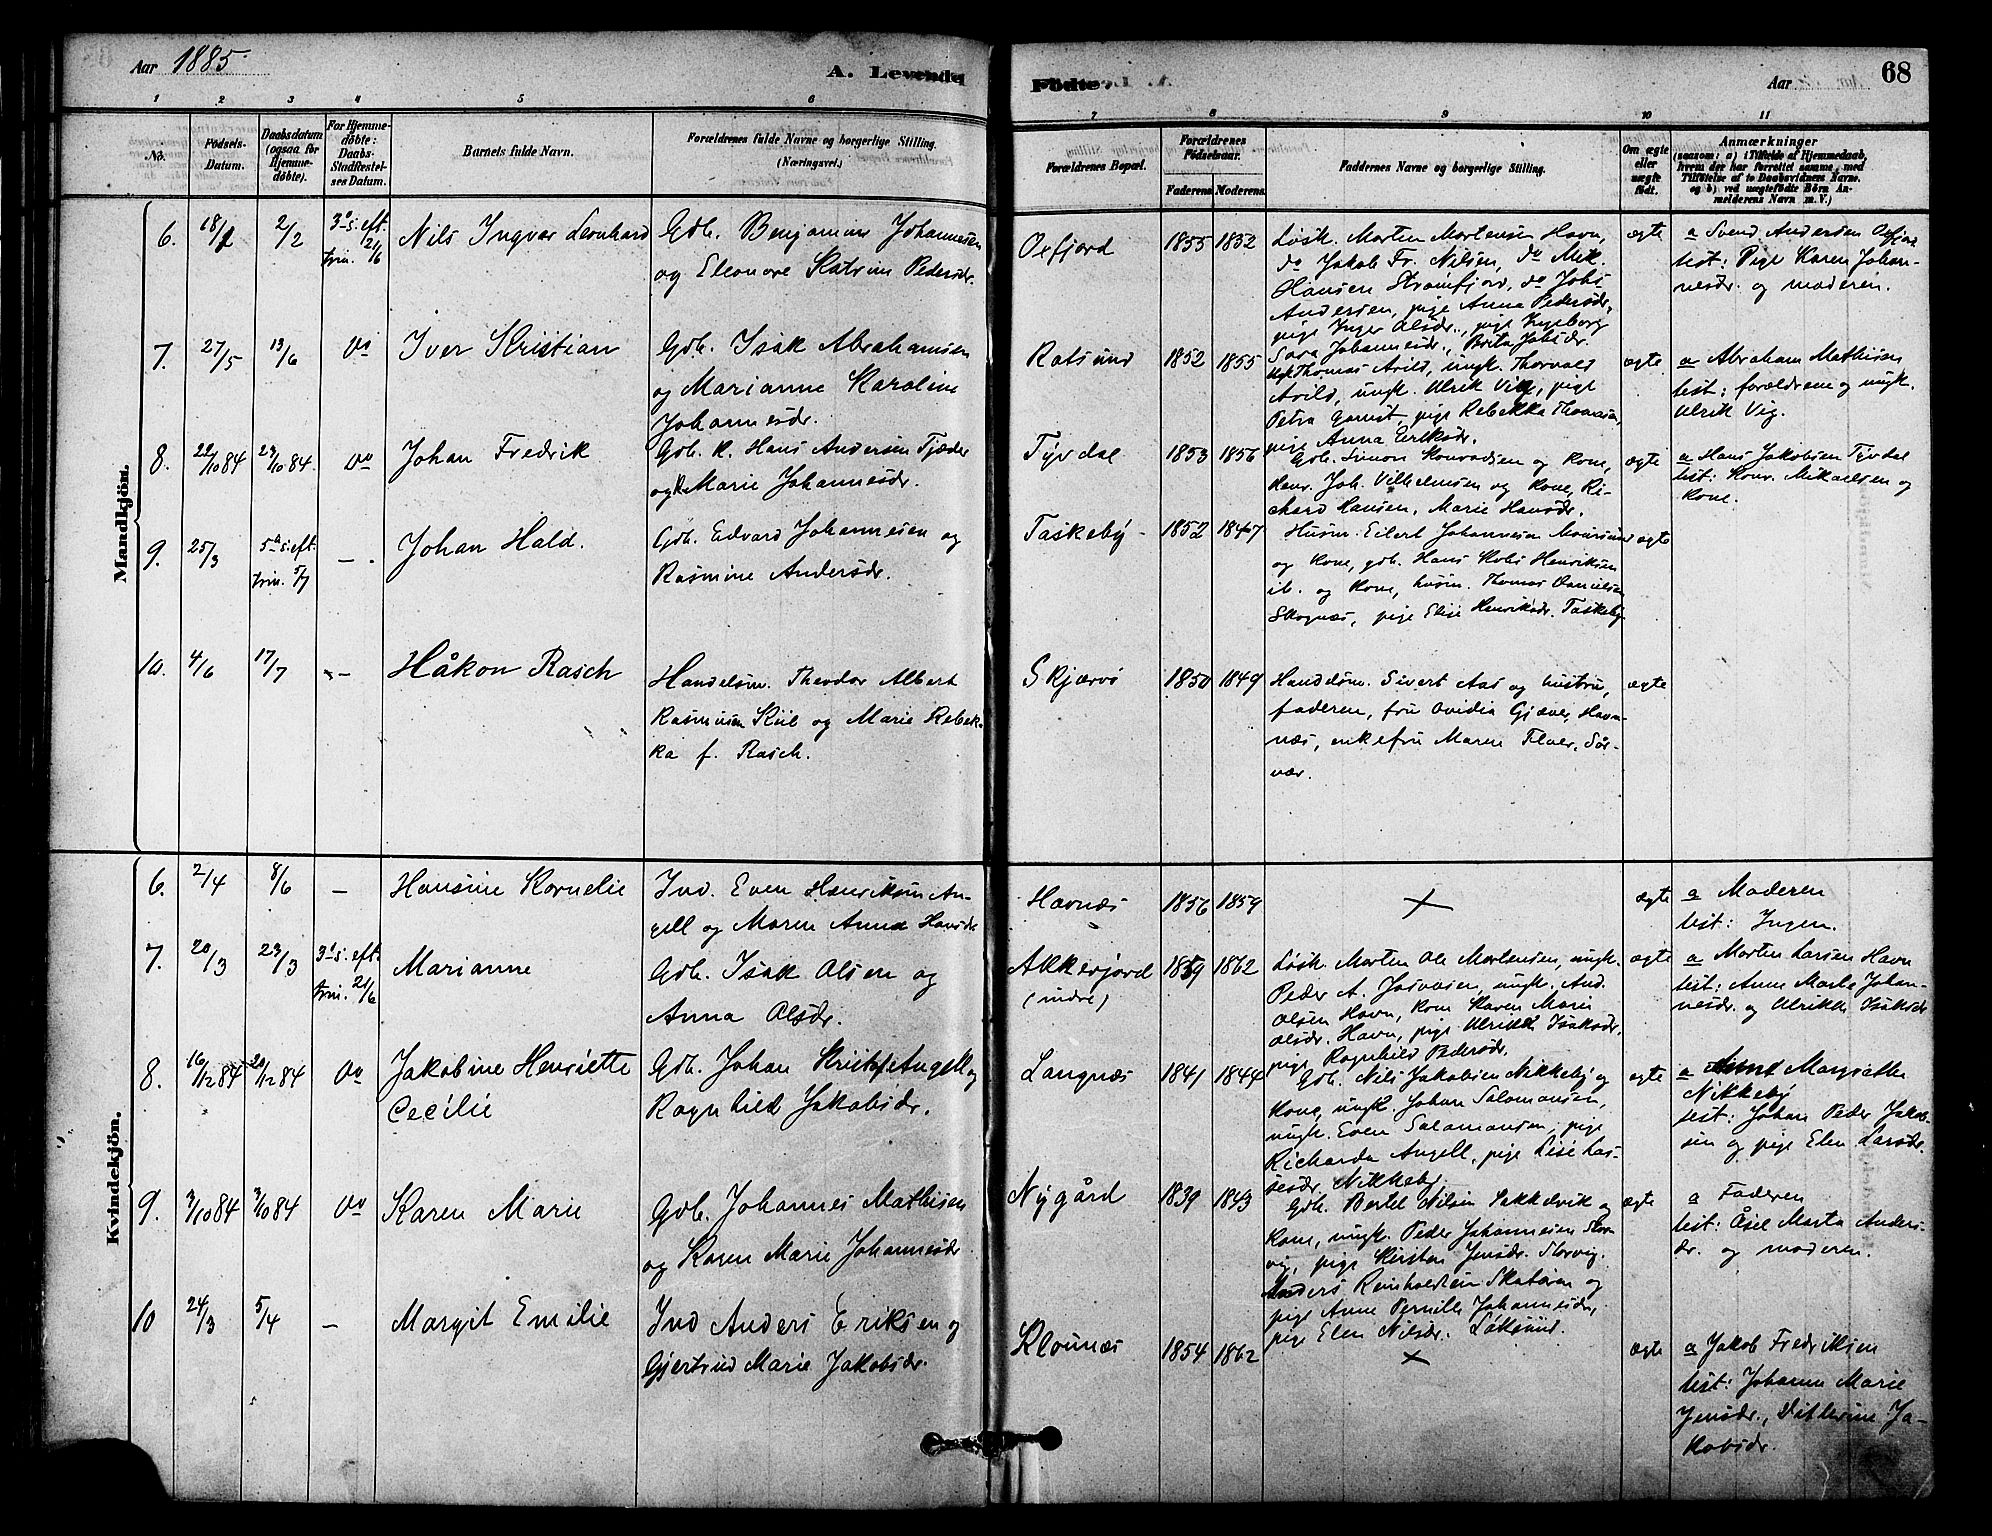 Aar 1885.
A. Levende
Födte.
Aar
68
1 2 3 4 5 6
7 8 9 10 11
No.
Födsels-
Datum.
Daabsdatum
(ogsaa for
Hjemme-
döbte).
For Hjemme-
döbte:
Daabs-
Stadfæstel-
ses Datum.
Barnets fulde Navn.
Forældrenes fulde Navne og borgerlige Stilling.
(Næringsvei.)
Forældrenes Bopæl.
Forældrenes
Födselsaar.
Faderens. Moderens.
Faddernes Navne og borgerlige Stilling.
Om ægte
eller
uægte
födt.
Anmærkninger
(saasom: a) i Tilfælde af Hjemmedaab,
hvem der har forrettet samme, med
Tilföielse af to Daabsvidners Navne.
og b) ved uægtefödte Börn An-
melderens Navn m. V.)
Mandkjön.
6. 18/1 2/2 3die s. eft.
trin. 21/6
Nils Ingvar Leonhard
Gdb. Benjamin Johannesen
og Eleonore Katrine Pedersdr.
Oxfjord 1855 1852
Løsk. Morten Mortensen Havn,
do Jakob Fr. Nilsen, do Mik.
Hansen Straumfjord, do Johs
Andersen, pige Anna Pedersdr.,
pige Inger Olsdr., pige Ingeborg
Sara Johannesdr., Brita Johsdr.
ægte
a Svend Andersen Oxfjord
test: Pige Karen Johan-
nesdr. og moderen.
7. 27/5 13/6 do
Iver Kristian
Gdb. Isak Abrahamsen
og Marianne Karoline
Johannesdr.
Rotsund 1852 1855
Thomas Arild, ungk. Thorvald
Arild, ungk. Ulrik Vig, pige
Petra Garnit, pige Rebekka Thomasen,
pige Anna Eriksdr.
ægte
a Abraham Mathisen
test: forældrene og ungk.
Ulrik Vig.
8. 22/10 84 23/10 84. do
Johan Fredrik
Gdb. K. Hans Andersen Tjæder
og K. Marie Johannesdr.
Tyvdal 1853 1856
Gdb. Simon Konradsen og kone,
Joh. Vilhelmsen og kone, Ri-
chard Hansen, Marie Hansdr.
ægte
a Hans Jakobsen Tyvdal
test: Konr. Mikaelsen og
kone.
9. 25/3 5te s. eft.
trin. 5/7 —
Johan Hald.
Gdb. Edvard Johannesen og
Rasmine Andersdr.
Taskeby 1852 1847
Husm. Eilert Johannesen Maursund
og kone, gdb. Hans Kobs Henriksen
ib. og kone, husm. Thomas Danielsen
Skognæs, pige Elise Henriksdr. Taskeby
ægte
10. 4/6 17/7 —
Håkon Rasch
Handelsm. Theodor Albert
Rasmusen Kiil og Marie Rebek-
ka f. Rasch.
Skjærvö 1850 1849
Handelsm. Sivert Aas og hustru,
faderen, fru Ovidia Gjæver, Havn-
næs, enkefru Maren Floer, Sör-
vær.
ægte
Kvindekjön.
6. 2/4 8/6 —
Hansine Kornelie
Ind. Even Henriksen An-
gell og Maren Anna Hansdr.
Havnæs 1856 1859
×
ægte
a Moderen
test: Ingen.
7. 20/3 23/3 3die s. eft.
trin. 21/6
Marianne
Gdb. Isak Olsen og
Anna Olsdr.
Akkerfjord
(indre)
1859 1862
Løsk. Morten Ole Mortensen, ungk.
Peder A. ungk. And.
Olsen Havn, kone Karen Marie
Olsdr. Havn, pige Ulrikke Isaksdr.
pige Ragnhild Pedersdr.
ægte
a Morten Larsen Havn
test: Anne Marthe Johan-
nesdr. og Ulrikke Isaksdr
8. 16/12 84 20/12 84 do
Jakobine Henriette
Cecilie
Gdb. Johan Kristof Angell og
Ragnhild Jakobsdr.
Langnæs 1841 1844
Gdb. Nils Jakobsen Nikkeby og
kone, ungk. Johan Salomonsen,
ungk. Even Salomonsen, pige
Richarda Angell, pige Lise Las-
sesdr. Nikkeby
ægte
a Margrethe
Nikkeby
test: Johan Peder Jakob-
sen og pige Elen Larsdr.
9. 3/10 84 3/10 84 do
Karen Marie
Gdb. Johannes Mathisen
og Karen Marie Johannesdr.
Nygård 1839 1843
Gdb. Bertel Nilsen Sakkelvik og
kone, ungk. Peder Johannesen Stor-
vig, pige Kirsten Jensdr. Storvig.
Anders Reinholdtsen Skatören og
pige Anne Pernille Johannesdr,
pige Elen Nilsdr. Lökesund.
ægte
a Faderen
test: Åsel Marta Anders-
dr. og moderen.
10 24/3 5/4 —
Margit Emilie
Ind Anders Eriksen og
Gjertrud Marie Jakobsdr.
Klounæs 1854 1862
×
ægte
a Jakob Fredriksen
test: Johanna Marie
Jensdr., Ja-
kobsdr.